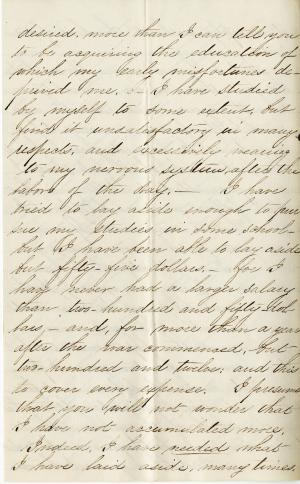 desired, more than I can tell you
to be acquiring the education of
which my early misfortunes de-
prived me. I have studied
by myself to some extent, but
find it unsatisfactory in many
respects, and excessively wearing
to my nervous system, after the
labors of the day. — I have
tried to lay aside enough to pur-
sue my studies in some school
but I have been able to lay aside
but fifty-five dollars, — for I
have never had a larger salary
than two-hundred and fifty dol-
lars, — and, for more than a year
after the war commenced, but
two-hundred and twelve, and this
to cover every expense. I presume
that you will not wonder that
I have not accumulated more.
Indeed, I have needed what
I have laid aside, many times,